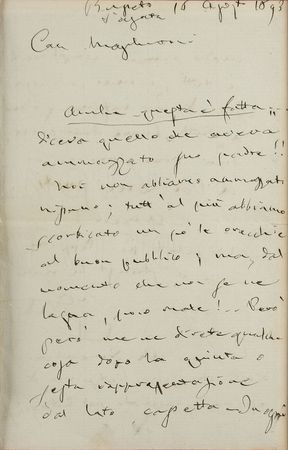 Busseto 16 Agost 1893
S. Agata
Car Mascheroni
Anche questa è fatta..
diceva quello che aveva
ammazzato suo padre!!
Noi non abbiamo ammazzato
nissuno; tutt'al più abbiamo
scorticato un pò le orecchie
al buon pubblico; ma, dal
momento che non se ne
lagna, poco male!.. Però
però me ne direte qualche
cosa dopo la quinta o
sesta rappresentazione
dal lato cassetta